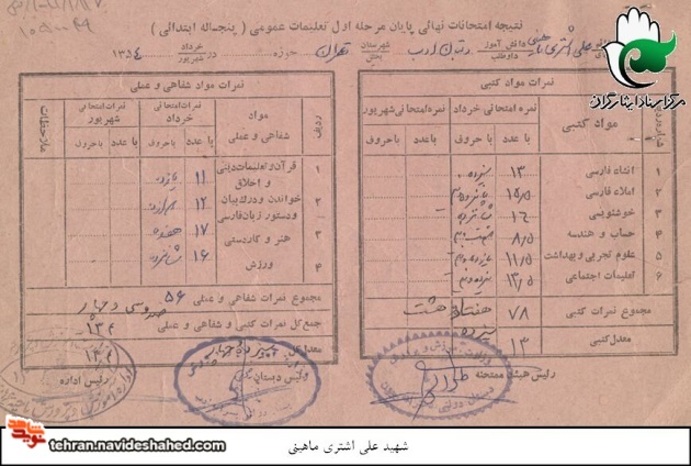 نتیجه امتحانات نهائی پایان مرحله اول تعلیمات عمومی (پنجساله ابتدائی)
علی اشتری ماهینی دانش آموز داوطلب دبستان ادب شهرستان بخش تهران حوزه در خرداد شهریور ۱۳۵۴
مرکز اسناد ایثارگران
نمرات مواد کتبی
شماره ردیف مواد کتبی نمره امتحانی خرداد نمره امتحانی شهریور
با عدد با حروف با عدد با حروف
۱ انشاء فارسی ۱۳ سیزده
۲ املاء فارسی ۱۵/۵ پانزده و نیم
۳ خوشنویسی ۱۶ شانزده
۴ حساب و هندسه ۸/۵ هشت و نیم
۵ علوم تجربی و بهداشت ۱۱/۵ یازده و نیم
۶ تعلیمات اجتماعی ۱۳/۵ سیزده و نیم
مجموع نمرات کتبی ۷۸ هفتاد و هشت
معدل کتبی ۱۳ سیزده
رئیس هیئت ممتحنه
نمرات مواد شفاهی و عملی
ردیف مواد شفاهی و عملی نمرات امتحانی خرداد نمرات امتحانی شهریور ملاحظات
با عدد با حروف با عدد با حروف
۱ قرآن و تعلیمات دینی و اخلاق ۱۱ یازده
۲ خواندن و درک بیان و دستور زبان فارسی ۱۲
۳ هنر و کاردستی ۱۷ هفده
۴ ورزش ۱۶ شانزده
مجموع نمرات شفاهی و عملی ۵۶
جمع کل نمرات کتبی و شفاهی و عملی ۱۳۴ صد و سی و چهار
معدل کل
رئیس دبستان
رئیس اداره
شهید علی اشتری ماهینی
نوید شاهد
tehran.navideshahed.com